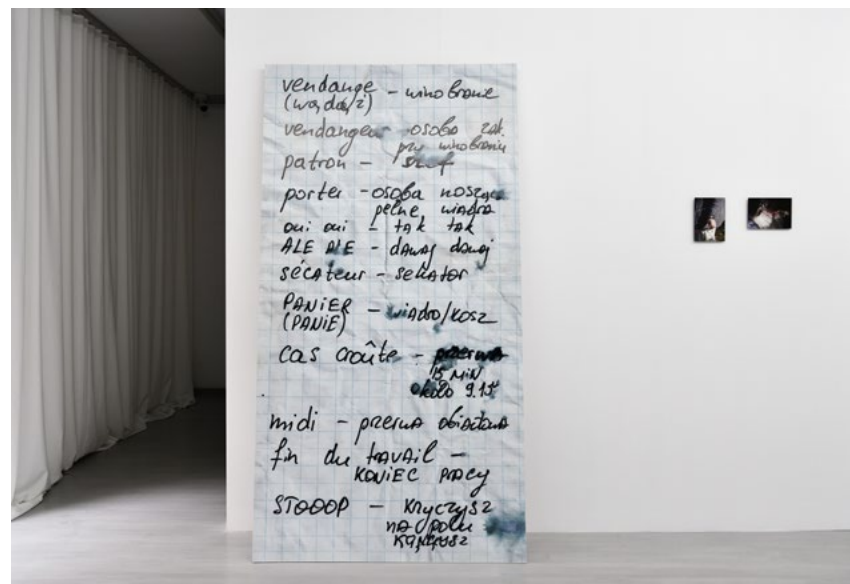 vendange - winobranie
(wądąż)
vendangeur osoba zatr.
przy winobraniu
patron - szef
porter - osoba nosząca
pełne wiadra
oui oui - tak tak
ALE ALE - dawaj dawaj
sécateur - sekator
PANIER - wiadro/kosz
(PANIE)
cas croûte - przerwa
15 MiN
około 9.15
midi - przerwa obiadowa
fin du travail -
KONiEC pracy
STOOOP - kryczysz
na polu
kończysz